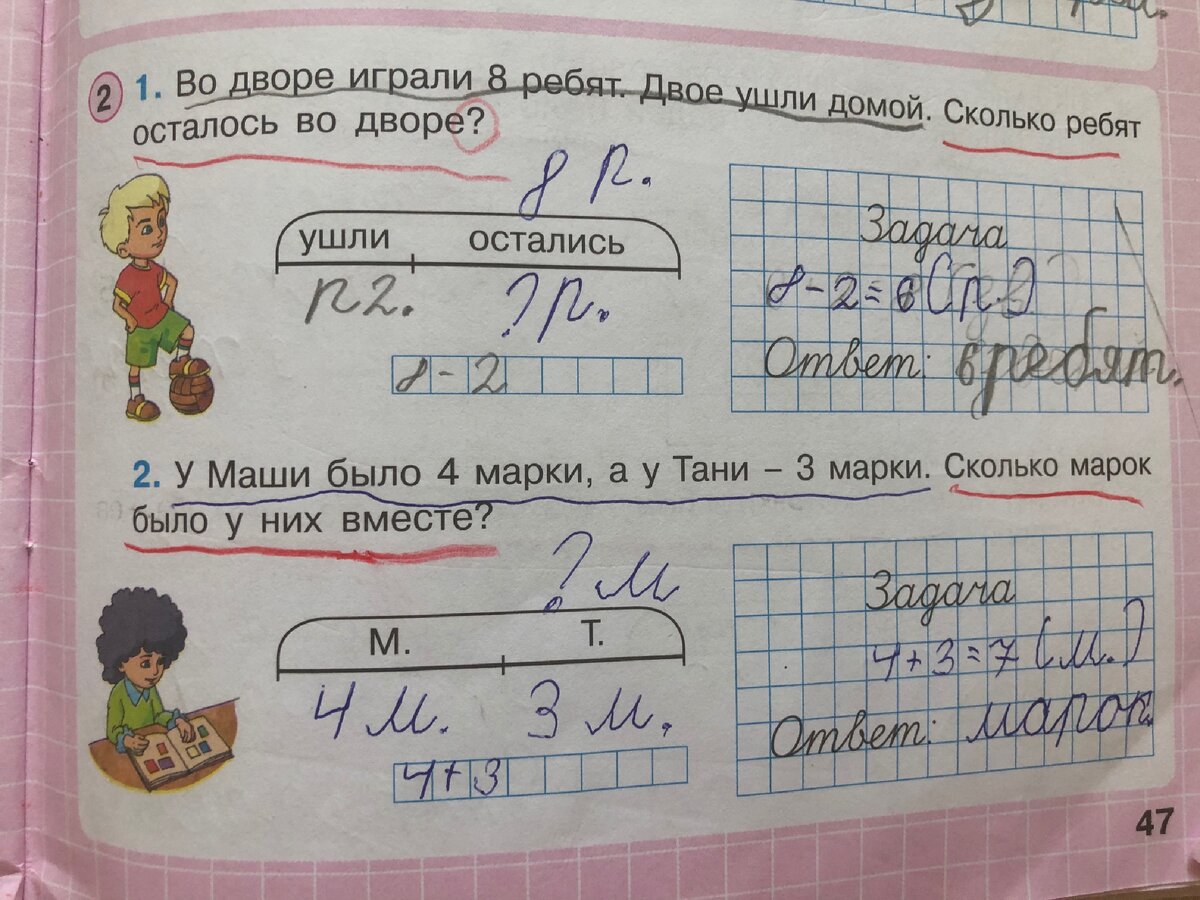 2 1. Во дворе играли 8 ребят. Двое ушли домой. Сколько ребят
осталось во дворе?
8 р.
ушли остались
р 2. ? р.
8-2
Задача
8-2=6 (р.)
Ответ: 6 ребят.
2. У Маши было 4 марки, а у Тани – 3 марки. Сколько марок
было у них вместе?
? м
М. Т.
4 м. 3 м.
4+3
Задача
4+3=7 (м.)
Ответ: марок.
47